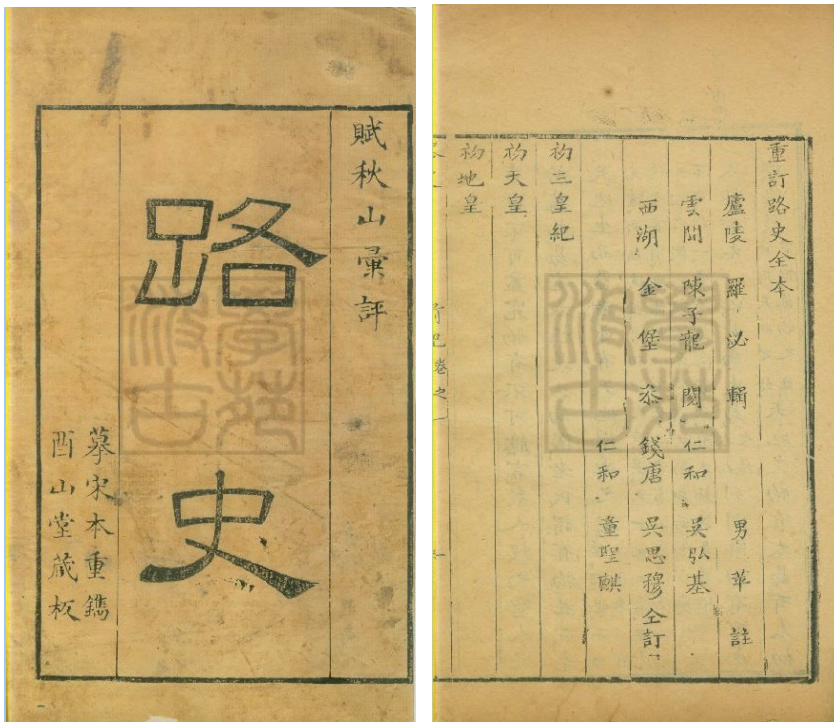 賦秋山彙評
路史
摹宋本重鐫
酉山堂藏板
重訂路史全本
廬陵 羅泌輯 男苹註
雲間 陳子龍閱 仁和 吳弘基
西湖 金堡叅 錢唐 吳思穆仝訂
仁和 童聖麒
初三皇紀
初天皇
初地皇
卷之一
學苑汲古
學苑汲古